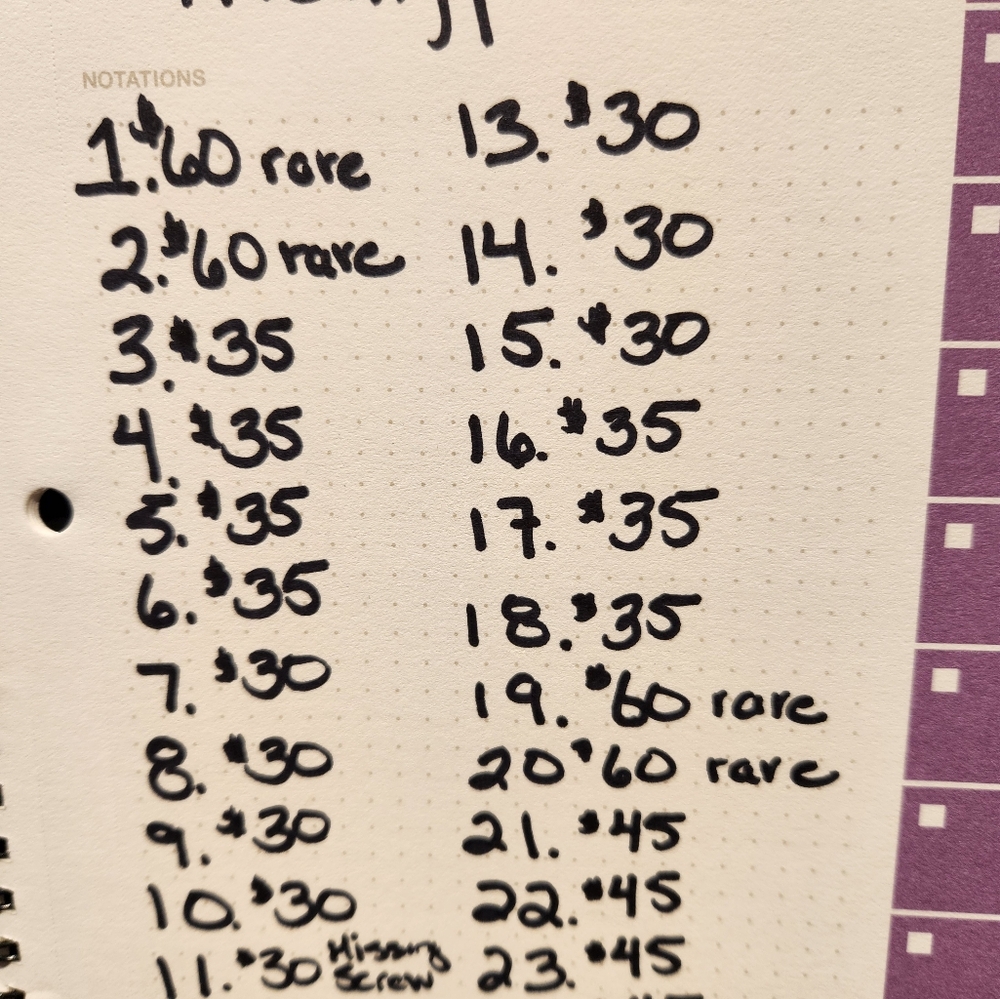 NOTATIONS
1. $60 rare
2. $60 rare
3. $35
4. $35
5. $35
6. $35
7. $30
8. $30
9. $30
10. $30
11. $30 Missing Screw
13. $30
14. $30
15. $30
16. $35
17. $35
18. $35
19. $60 rare
20 $60 rare
21. $45
22. $45
23. $45